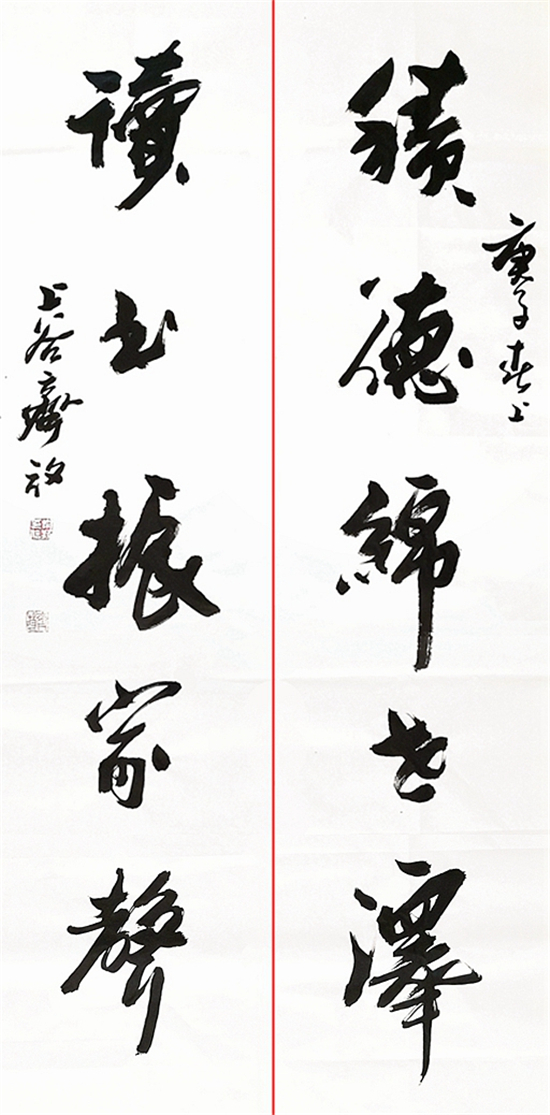 庚子春上
積德綿世澤
讀書振家聲
上谷齊